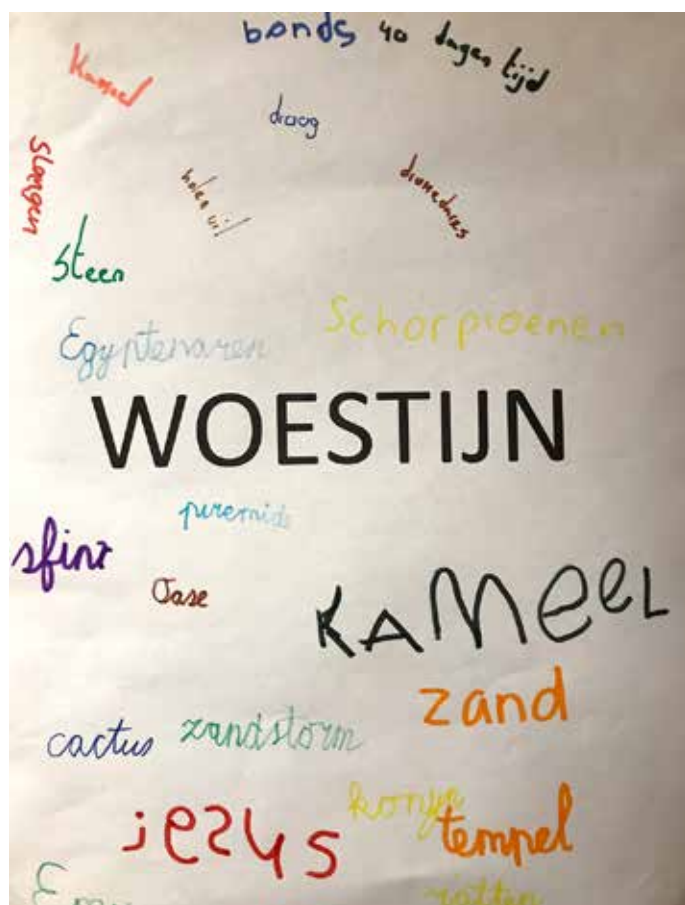 bonds 40 dagen tijd
Kameel
droog
Slangen
holen uil
dromedaries
steen
Schorpioenen
Egyptenaren
WOESTIJN
piremide
sfinx
Oase
KAMeeL
zand
cactus zandstorm
jezus
tempel
ratten